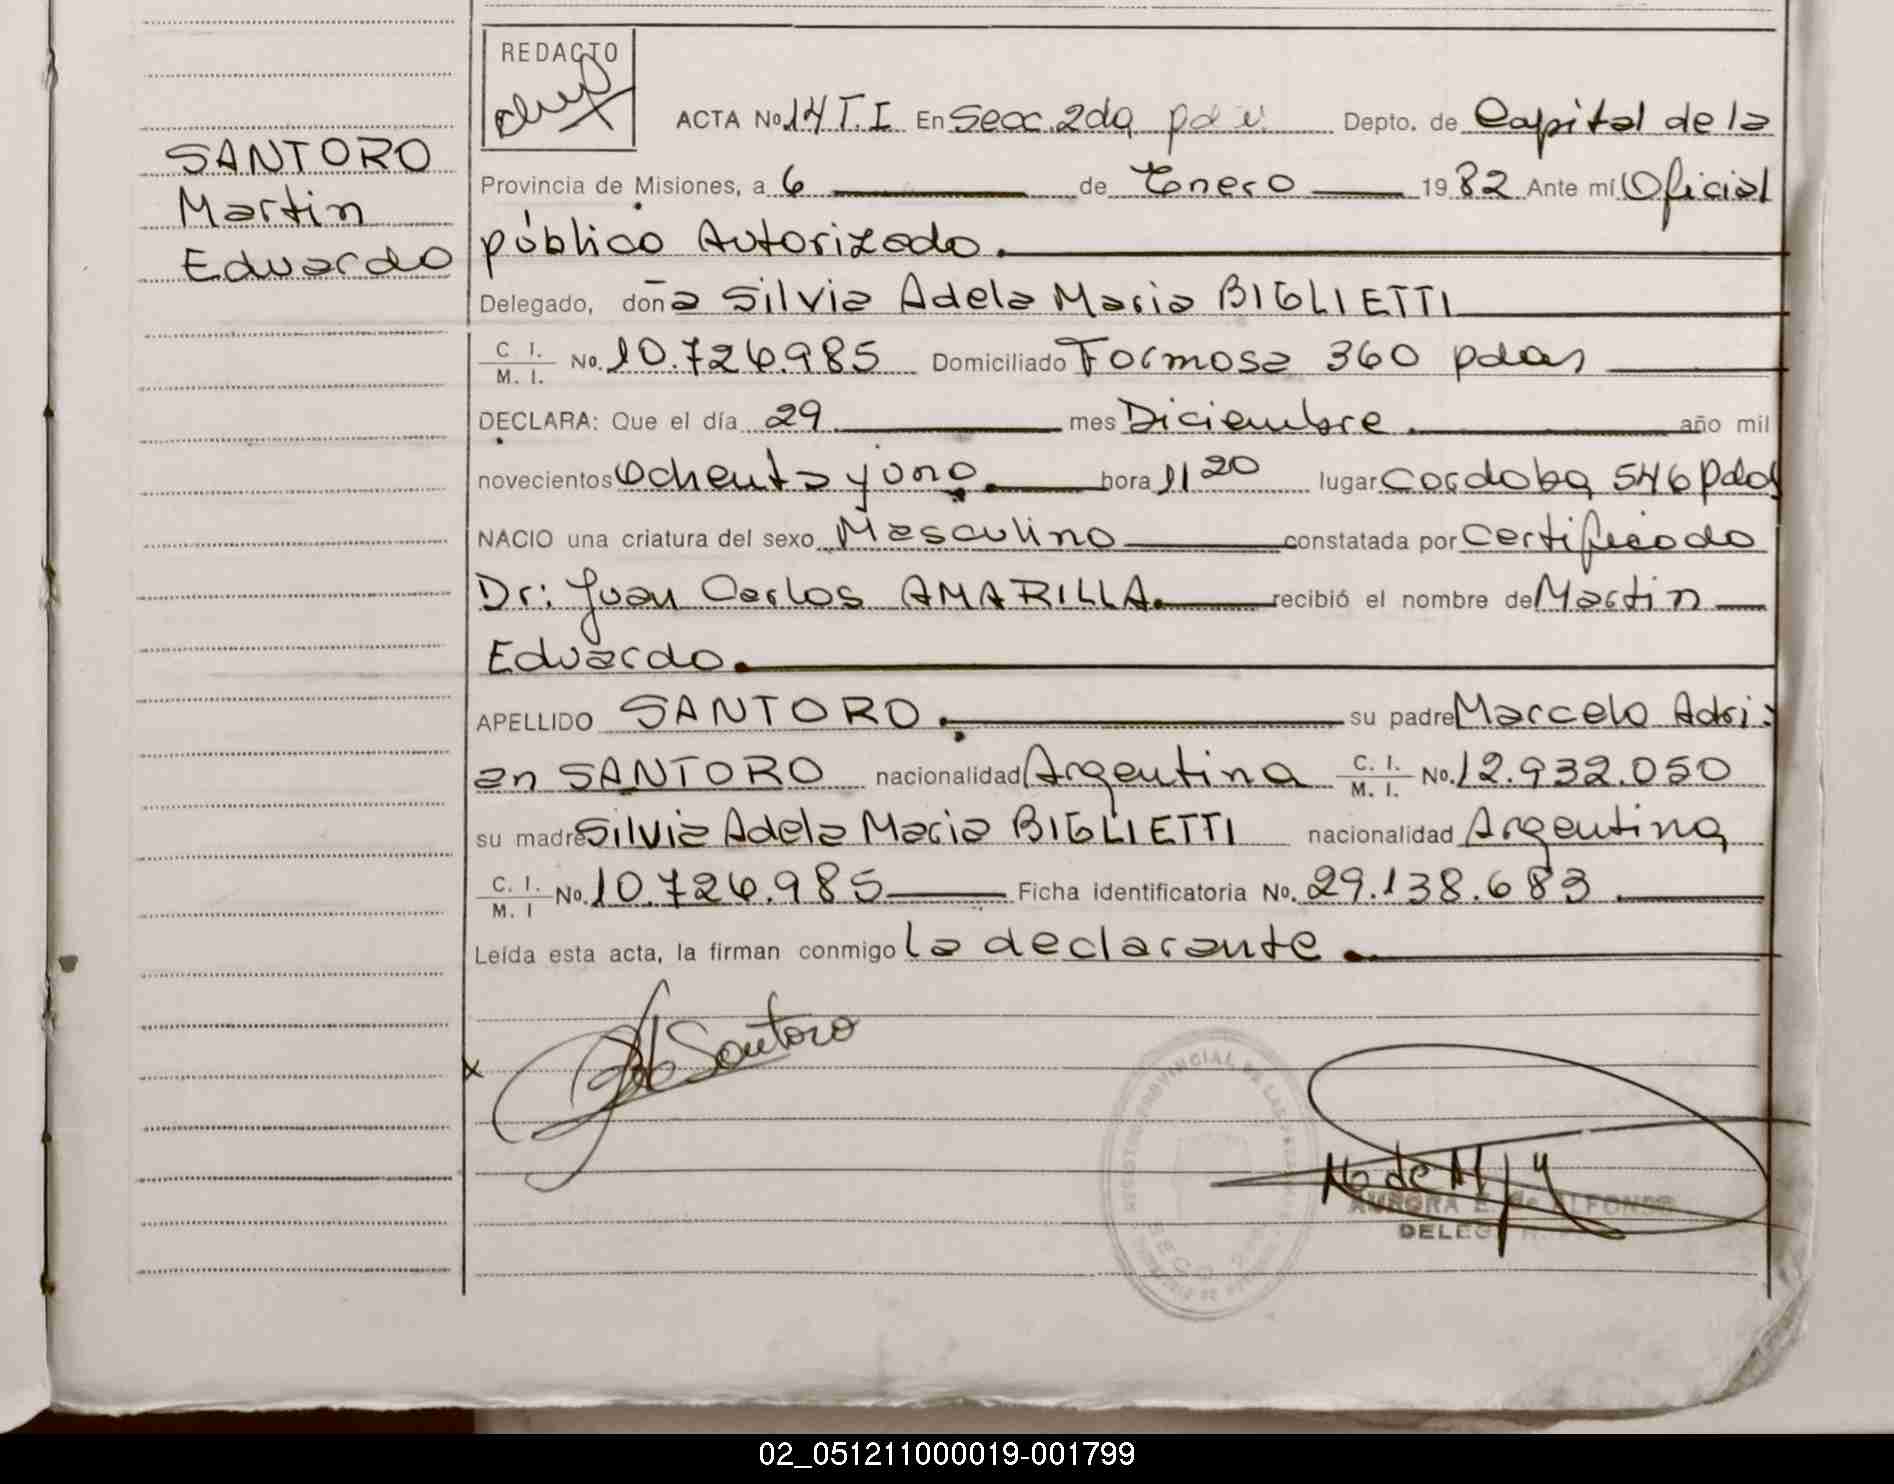 REDACTO
ACTA No. 14 T.I En Secc. 2da pdas. Depto. de Capital de la
SANTORO
Martin
Eduardo
Provincia de Misiones, a 6 de Enero 1982 Ante mí Oficial
público Autorizado.
Delegado, doña Silvia Adela Maria BIGLIETTI
C I. M. I. No. 10.726.985 Domiciliado Formosa 360 pdas
DECLARA: Que el día 29 mes Diciembre. año mil
novecientos ochenta y uno. hora 11 20 lugar Cordoba 546 Pdas
NACIO una criatura del sexo Masculino constatada por Certificado
Dr: Juan Carlos AMARILLA. recibió el nombre de Martin
Eduardo.
APELLIDO SANTORO. su padre Marcelo Adri-
an SANTORO nacionalidad Argentina C. I. M. I. No. 12.932.050
su madre Silvia Adela Maria BIGLIETTI nacionalidad Argentina
C. I. M. I No. 10.726.985 Ficha identificatoria No. 29.138.683.
Leída esta acta, la firman conmigo la declarante.
x Santoro
AURORA E. de ALFONSO
02_051211000019-001799